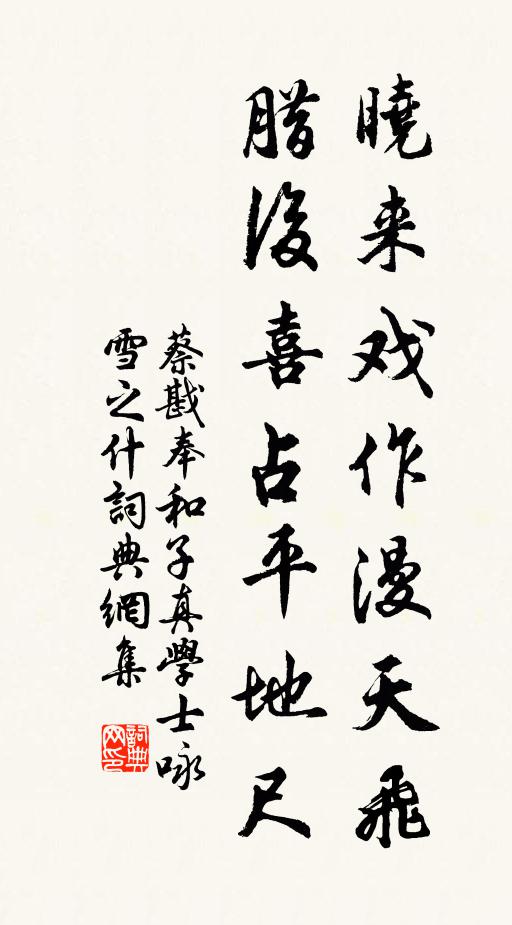 曉来戏作漫天飛
腊後喜占平地尺
蔡戡奉和子真學士咏
雪之什詞典網集
詞典网印